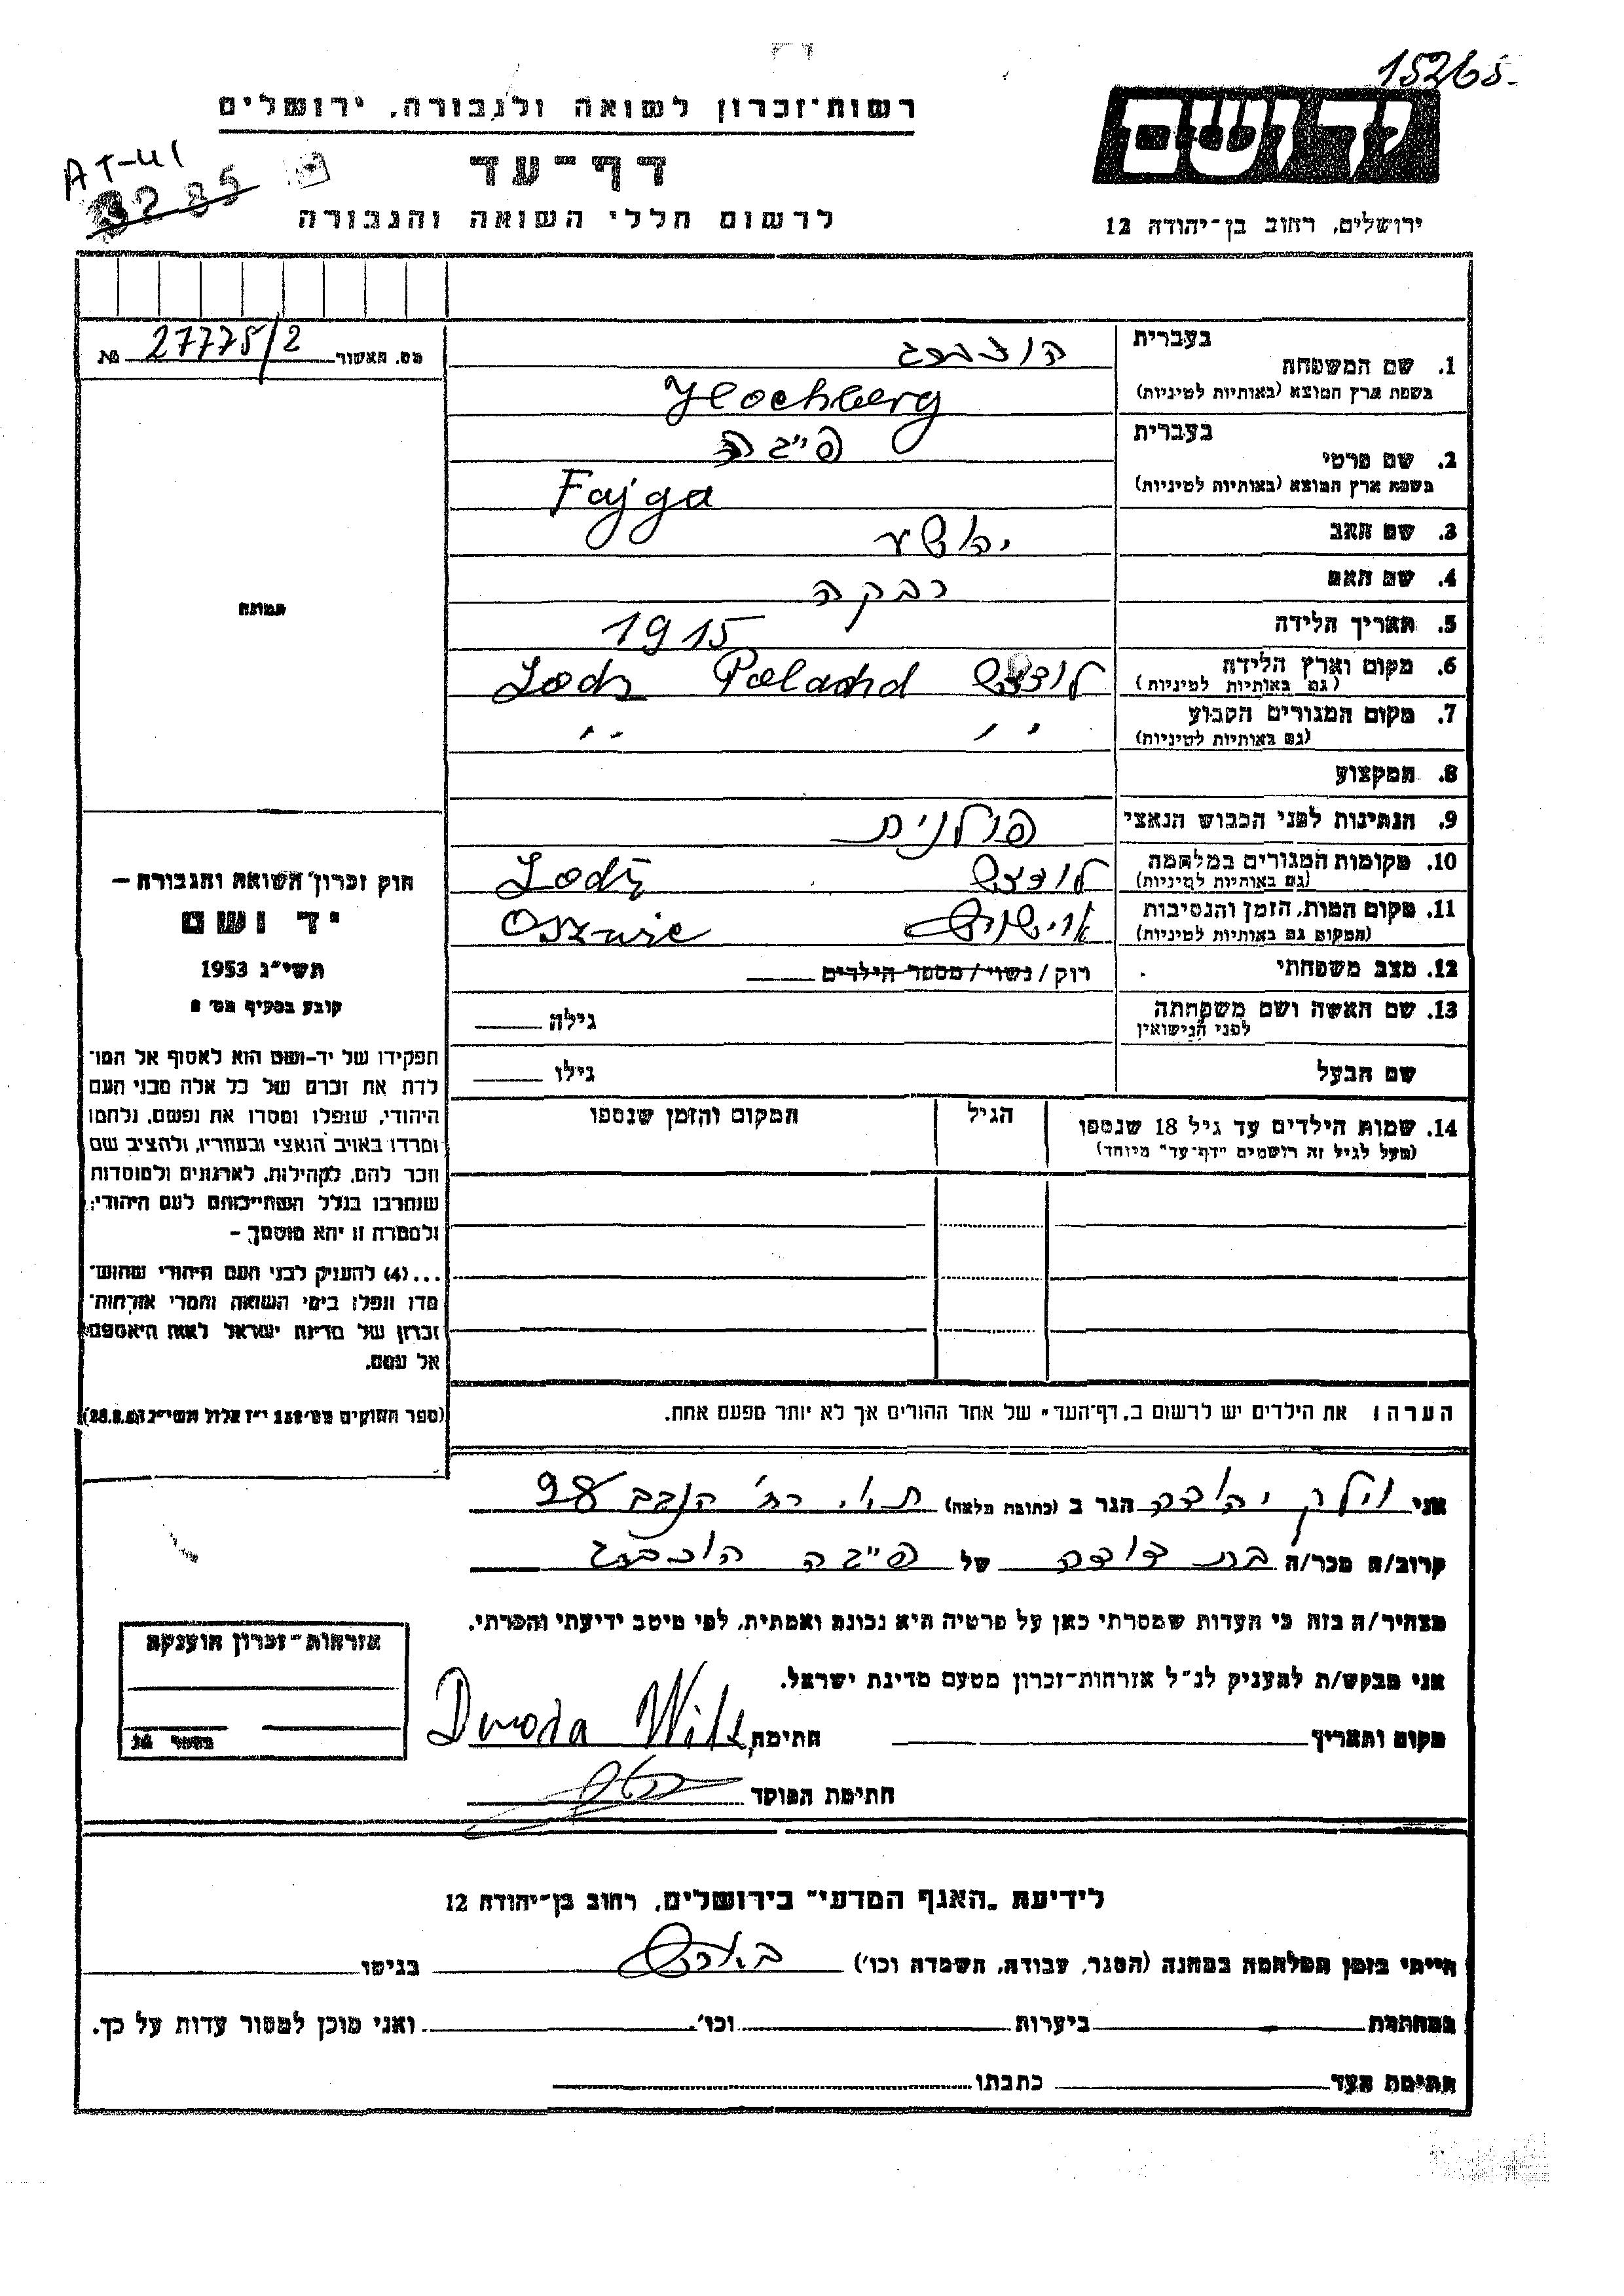 15265
רשות־זכרון לשואה ולגבורה, ירושלים
יד ושם
AT-41
דף־עד
לרשום חללי השואה והגבורה
ירושלים, רחוב בן־יהודה 12
מס. האשור 27775/2 №
בעברית
1. שם המשפחה
בשפת ארץ המוצא (באותיות לטיניות)
Hochberg
בעברית פייגה
2. שם פרטי
בשפת ארץ המוצא (באותיות לטיניות)
Fajga
3. שם האב
4. שם האם רבקה
תמונה
5. תאריך הלידה 1915
6. מקום וארץ הלידה לודצש Poland Lodz
(גם באותיות לטיניות)
7. מקום המגורים הקבוע ״ ״
(גם באותיות לטיניות)
8. המקצוע
9. הנתינות לפני הכבוש הנאצי פולנית
10. מקומות המגורים במלחמה לודצש Lodz
(גם באותיות לטיניות)
11. מקום המות, הזמן והנסיבות
(המקום גם באותיות לטיניות)
12. מצב משפחתי רוק / נשוי / מספר הילדים
13. שם האשה ושם משפחתה גילה
לפני הנישואין
שם הבעל גילו
14. שמות הילדים עד גיל 18 שנספו הגיל המקום והזמן שנספו
(מעל לגיל זה רושמים "דף־עד" מיוחד)
חוק זכרון השואה והגבורה –
יד ושם
תשי״ג 1953
קובע בסעיף מס׳ 2
תפקידו של יד-ושם הוא לאסוף אל המו־
לדת את זכרם של כל אלה מבני העם
היהודי, שנפלו ומסרו את נפשם, נלחמו
ומרדו באויב הנאצי ובעוזריו, ולהציב שם
וזכר להם, לקהילות, לארגונים ולמוסדות
שנחרבו בגלל השתייכותם לעם היהודי;
ולמטרה זו יהא מוסמך –
...(4) להעניק לבני העם היהודי שהוש־
מדו ונפלו בימי השואה והמרי אזרחות־
זכרון של מדינת ישראל לאות היאספם
אל עמם.
הערה: את הילדים יש לרשום ב„דף־העד" של אחד ההורים אך לא יותר מפעם אחת.
אני וילק יהודה הגר ב (כתובת מלאה) ת.א. רח׳ הנגב 28
קרוב/ה מכר/ה בת דודה של פייגה הוכברג
מצהיר/ה בזה כי העדות שמסרתי כאן על פרטיה היא נכונה ואמתית, לפי מיטב ידיעתי והכרתי.
אני מבקש/ת להעניק לנ״ל אזרחות־זכרון מטעם מדינת ישראל.
מקום ותאריך חתימת
חתימת המוסד
אזרחות־זכרון הוענקה
לידיעת „האגף המדעי" בירושלים, רחוב בן־יהודה 12
הייתי בזמן המלחמה במחנה (הסגר, עבודה, השמדה וכו׳) בגיטו
במחתרת ביערות וכו׳ ואני מוכן למסור עדות על כך.
חתימת העד כתבתו